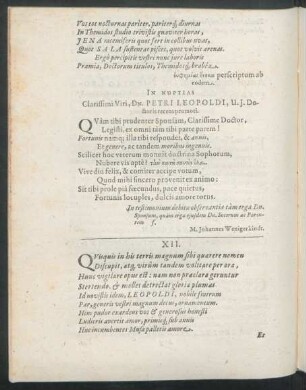 Vos tot nocturnas pariter, pariterq́, diurnas
In Themidos studio trivistis gnaviter horas,
JENA racemiferis quas fert in collibus uvas,
Quot SALA sustentat pisces, quot volvit arenas.
Ergò percipitis vestri nunc fere laboris
Præmia, Doctorum titulos, Themidosq́, brabéa.
perscriptum ab
eodem.
IN NUPTIAS
Clarissimi Viri, Dn. PETRI LEOPOLDI, U. J. Do-
ctoris recens promoti.
QVàm tibi prudenter Sponsam, Clarissime Doctor,
Legisti, ex omni tàm tibi parte parem!
Fortunis namq́; illa tibi respondet, & annis,
Et genere, ac tandem moribus ingenuis.
Scilicet hoc veterum monuit doctrina Sophorum,
Nubere vis aptè? tàm nuni
Vive diu felix, & comiter accipe votum,
Quod mihi sincero provenit ex animo:
Sit tibi prole piâ fœcundus, pace quietus,
Fortunis locuples, dulcis amore torus.
In testimonium debitæ observantiæ tàm erga Dn.
Sponsum, quàm erga ejusdem Dn. Socerum ac Paren-
tem f.
M. Johannes Weniger kirch.
XII.
QVisquis in his terris magnum sibi quærere nomen
Discupit, atq́, virûm tandem volitare per ora,
Hunc vigilare opus est: nam non præclara geruntur
Stertendo. & molles detrectat gloria plumas
Id novistis idem, LEOPOLDI, nobile fratrum
Par, generis vestri magnum decus, ornamentum.
Hinc pudor exardens vos & generosus honesti
Ludoris arcetis amor, primisq́, sub annis
Huc incumbentes Musæ palletis amore.
Et